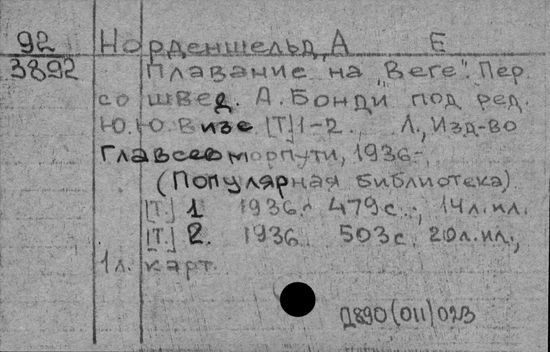 92 Норденшельд, А Е
3892 Плавание на „Веге". Пер.
со швед. А. Бонди под ред.
Ю.Ю. Визе [Т.] 1-2. Л., Изд-во
Главсевморпути, 1936-.
(Популярная библиотека).
[Т.] 1. 1936. 479 с., 14 л. ил.
[Т.] 2. 1936. 503 с. 20 л. ил.,
1 л. карт.
Д890(011)023